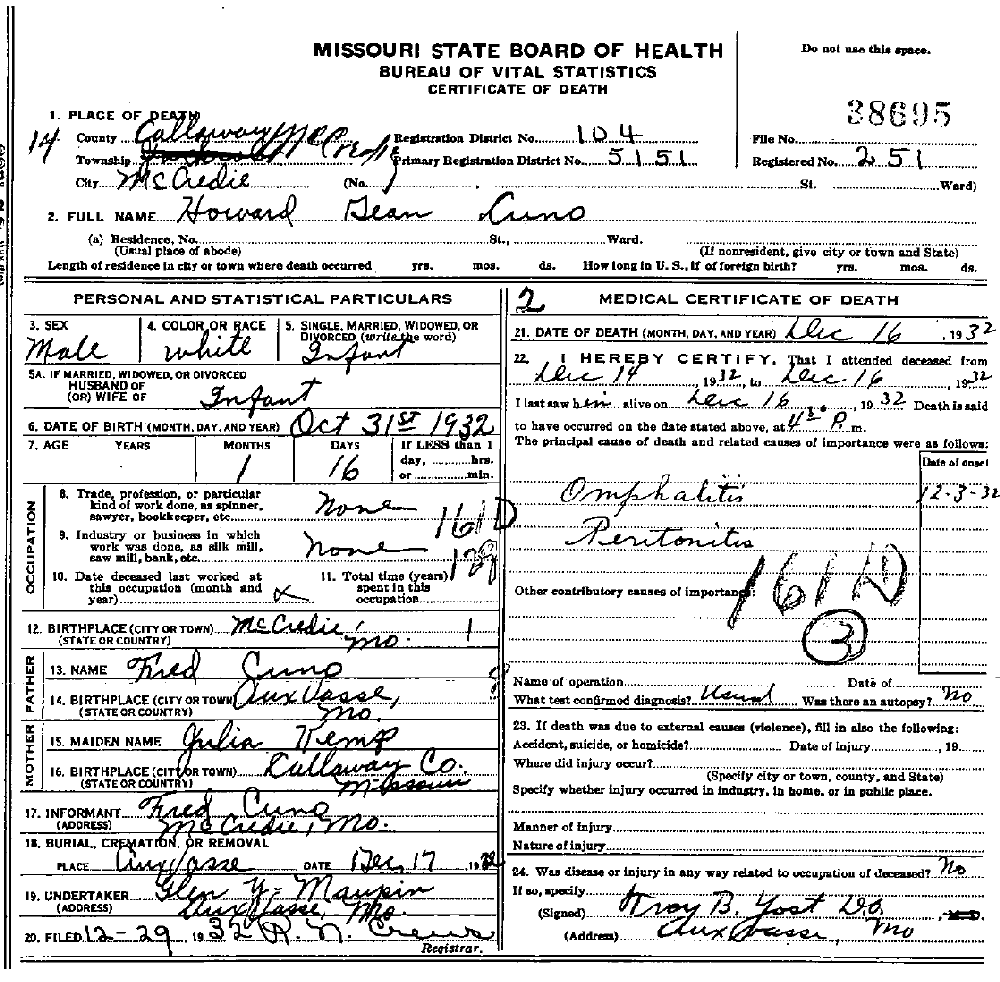 MISSOURI STATE BOARD OF HEALTH
BUREAU OF VITAL STATISTICS
CERTIFICATE OF DEATH
Do not use this space.
38695
1. PLACE OF DEATH
14 County Callaway Registration District No. 104 File No.
Township Primary Registration District No. 5151 Registered No. 251
City McCredie (No. St. Ward)
2. FULL NAME Howard Dean Cuno
(a) Residence, No. St., Ward.
(Usual place of abode) (If nonresident, give city or town and State)
Length of residence in city or town where death occurred yrs. mos. ds. How long in U. S., if of foreign birth? yrs. mos. ds.
PERSONAL AND STATISTICAL PARTICULARS
3. SEX Male
4. COLOR OR RACE White
5. SINGLE, MARRIED, WIDOWED, OR DIVORCED (write the word) Infant
5A. IF MARRIED, WIDOWED, OR DIVORCED
HUSBAND OF
(OR) WIFE OF Infant
6. DATE OF BIRTH (MONTH, DAY, AND YEAR) Oct 31st 1932
7. AGE YEARS MONTHS DAYS If LESS than 1
1 16 day, hrs.
or min.
OCCUPATION
8. Trade, profession, or particular
kind of work done, as spinner,
sawyer, bookkeeper, etc. None
161D
9. Industry or business in which
work was done, as silk mill,
saw mill, bank, etc. None
10. Date deceased last worked at
this occupation (month and
year)
11. Total time (years)
spent in this
occupation
12. BIRTHPLACE (CITY OR TOWN) McCredie, 1
(STATE OR COUNTRY) Mo.
FATHER
13. NAME Fred Cuno
14. BIRTHPLACE (CITY OR TOWN) Auxvasse,
(STATE OR COUNTRY) Mo.
MOTHER
15. MAIDEN NAME Julia Kemp
16. BIRTHPLACE (CITY OR TOWN) Callaway Co.
(STATE OR COUNTRY) Missouri
17. INFORMANT Fred Cuno
(ADDRESS) McCredie, Mo.
18. BURIAL, CREMATION, OR REMOVAL
PLACE Auxvasse DATE Dec, 17 1932
19. UNDERTAKER Glen Y. Maupin
(ADDRESS) Auxvasse, Mo.
20. FILED 12-29 1932 R. N. Crews
Registrar.
2 MEDICAL CERTIFICATE OF DEATH
21. DATE OF DEATH (MONTH, DAY, AND YEAR) Dec 16, 1932
22. I HEREBY CERTIFY, That I attended deceased from
Dec 14, 1932, to Dec. 16, 1932
I last saw him alive on Dec 16, 1932 Death is said
to have occurred on the date stated above, at 4 30 P. m.
The principal cause of death and related causes of importance were as follows:
Date of onset
Omphalitis 12-3-32
Peritonitis
161D
Other contributory causes of importance:
3
Name of operation Date of
What test confirmed diagnosis? Usual Was there an autopsy? No
23. If death was due to external causes (violence), fill in also the following:
Accident, suicide, or homicide? Date of injury , 19
Where did injury occur?
(Specify city or town, county, and State)
Specify whether injury occurred in industry, in home, or in public place.
Manner of injury
Nature of injury
24. Was disease or injury in any way related to occupation of deceased? No
If so, specify
(Signed) Troy B. Yost D.O.
(Address) Auxvasse, Mo